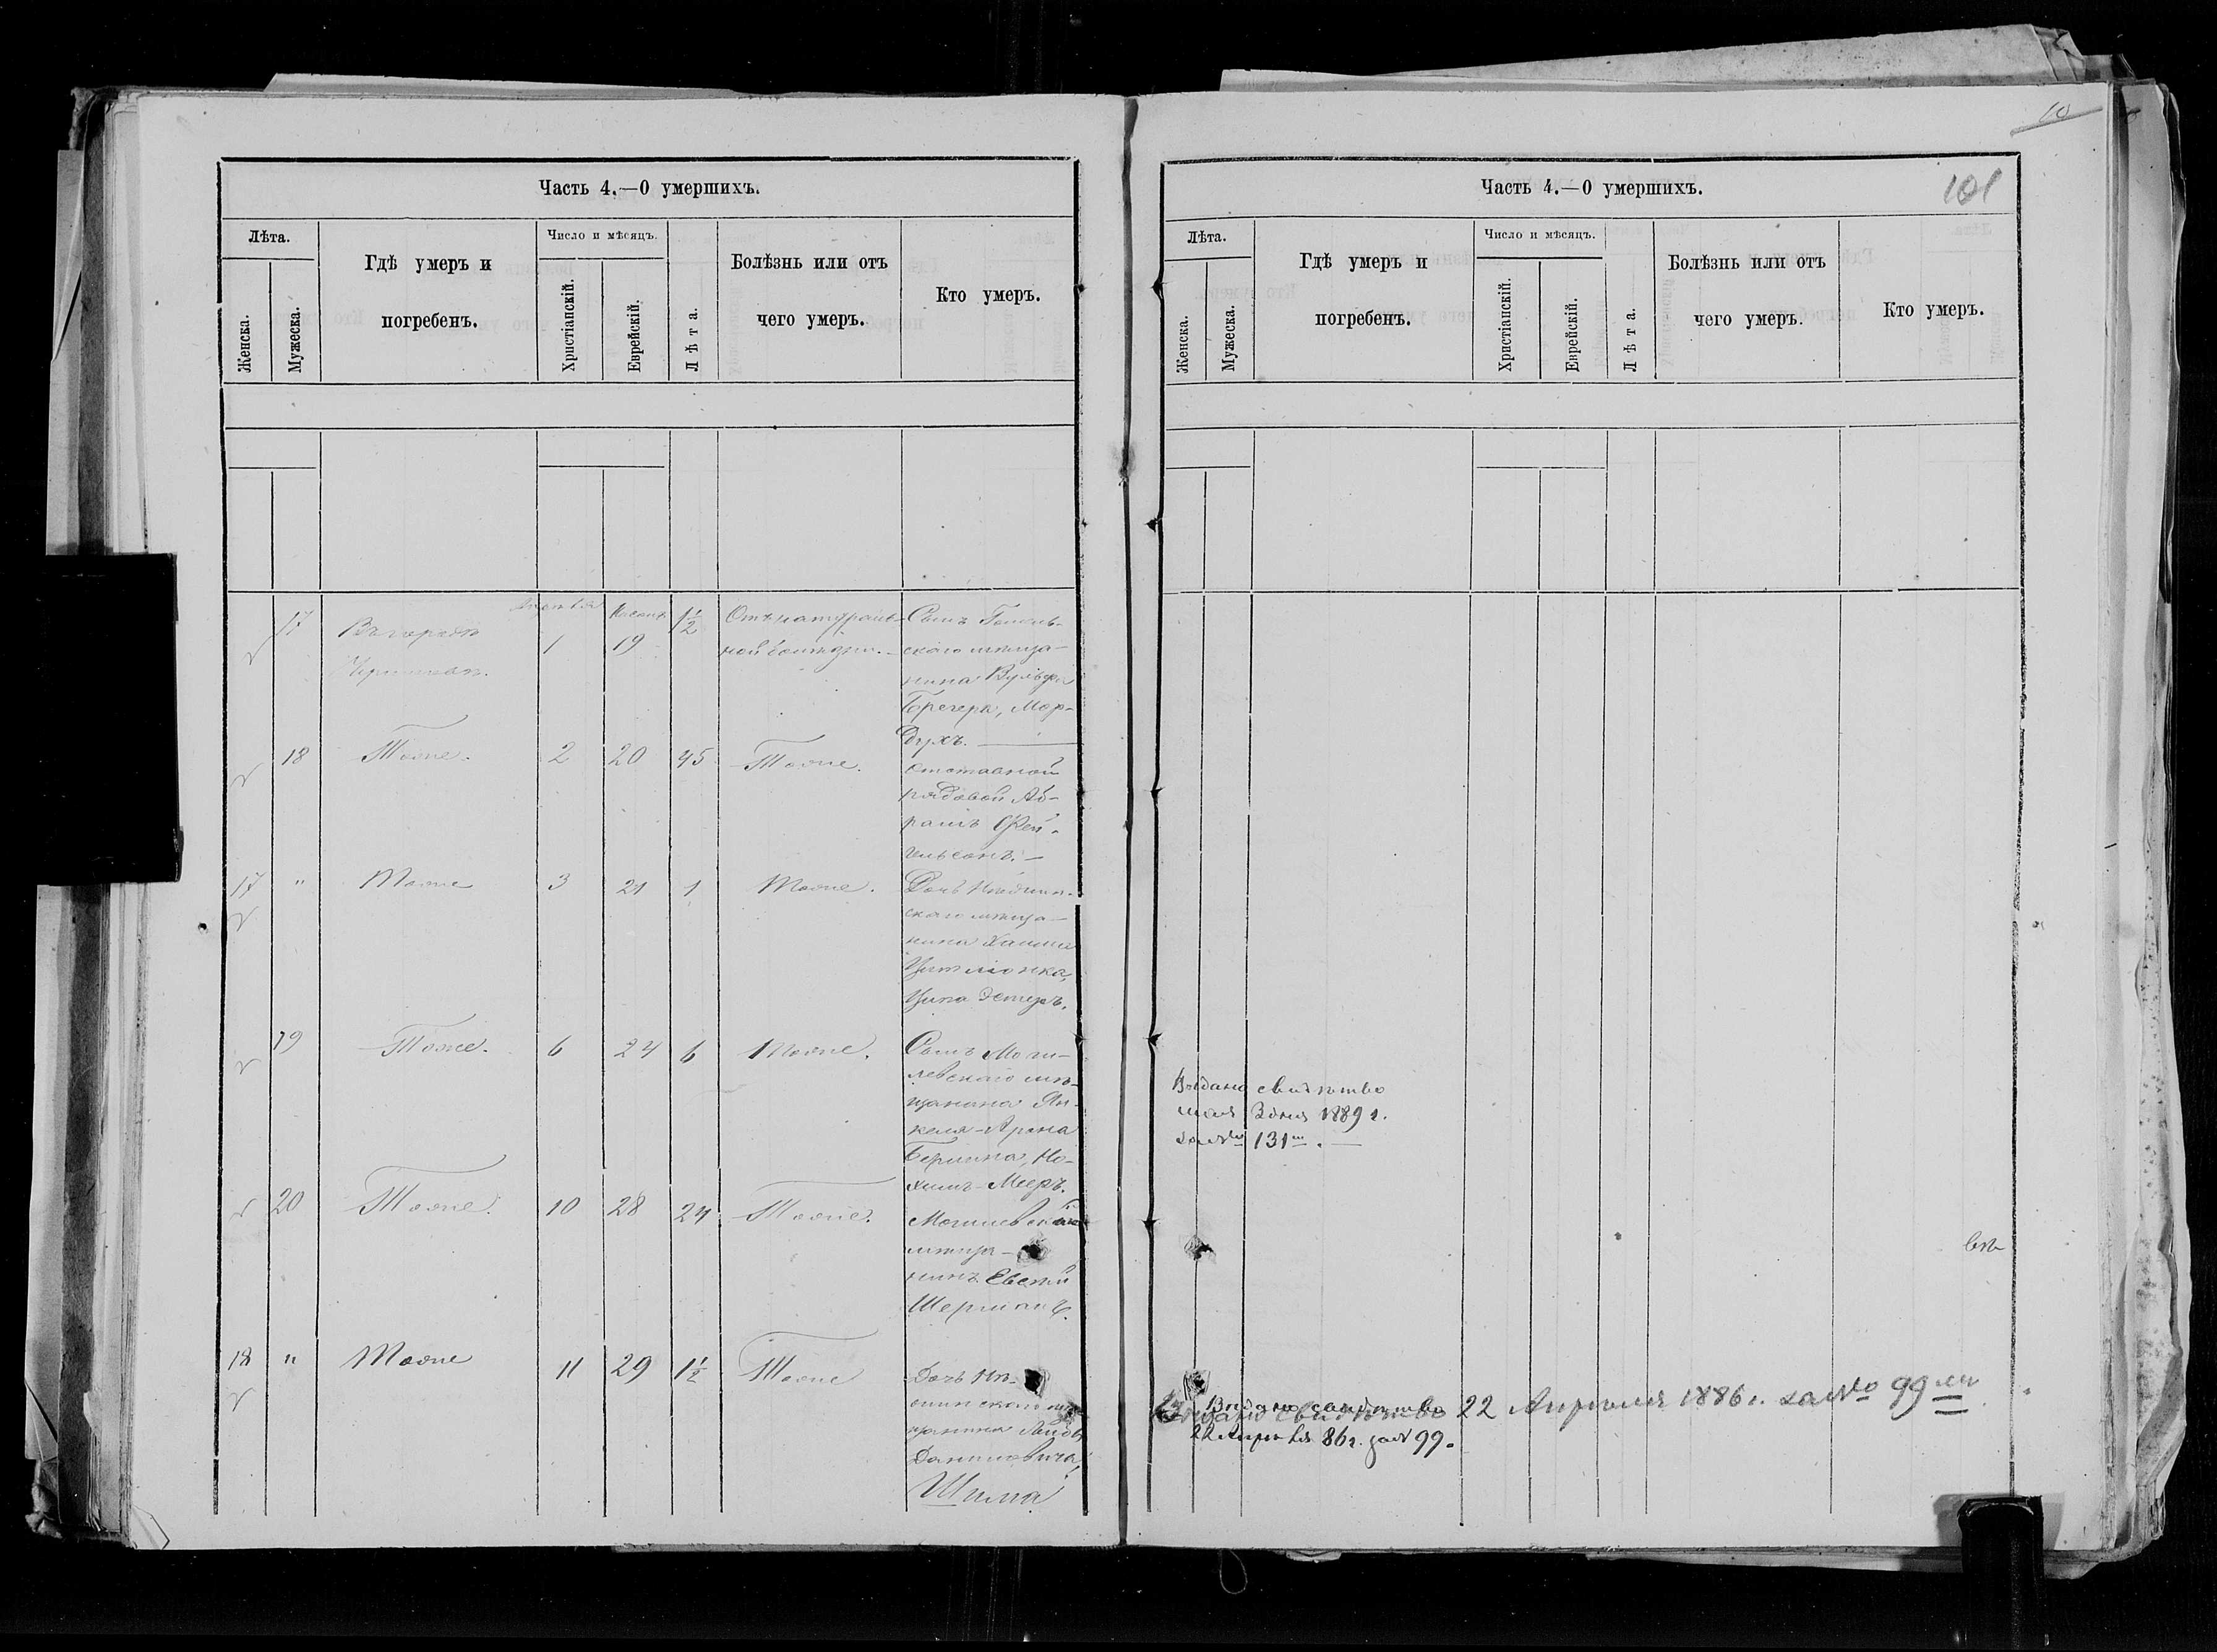 Часть 4.—О умершихъ.
Лѣта.
Женска.
Мужеска.
Гдѣ умеръ и
погребенъ.
Число и мѣсяцъ.
Христіанскій.
Еврейскій.
Лѣта.
Болѣзнь или отъ
чего умеръ.
Кто умеръ.
17
Въ городѣ
1
19
1½
Отъ натураль-
ной
Сынъ Гомель-
скаго мѣща-
нина Вульфа
Брегера, Мор-
духъ.
18
Тоже.
2
20
45
Тоже.
Отставной
рядовой Аб-
рамъ Фей-
гельсонъ.
17
"
Тоже
3
21
1
Тоже.
Дочь
скаго мѣща-
нина Хаима
Цитлюнка,
Ципа Эстеръ.
19
Тоже.
6
24
6
Тоже.
Сынъ Моги-
левскаго мѣ-
щанина Ян-
келя-Арона
Берлина, Но-
химъ-Мееръ.
20
Тоже.
10
28
24
Тоже.
Могилевскій
мѣща-
нинъ Евсей
Шерманъ.
18
"
Тоже
11
29
1½
Тоже
Дочь Ня-
скаго мѣ-
щанина
Даниловича,
Шима
10
Часть 4.—О умершихъ.
101
Лѣта.
Женска.
Мужеска.
Гдѣ умеръ и
погребенъ.
Число и мѣсяцъ.
Христіанскій.
Еврейскій.
Лѣта.
Болѣзнь или отъ
чего умеръ.
Кто умеръ.
Выдано свидѣтство
мая 3 дня 1889 г.
за № 131м.
Выдано свидѣтство 22 Апрѣля 1886 г. за № 99м
Выдано свидѣтство
22 Апрѣля 86 г. за № 99.